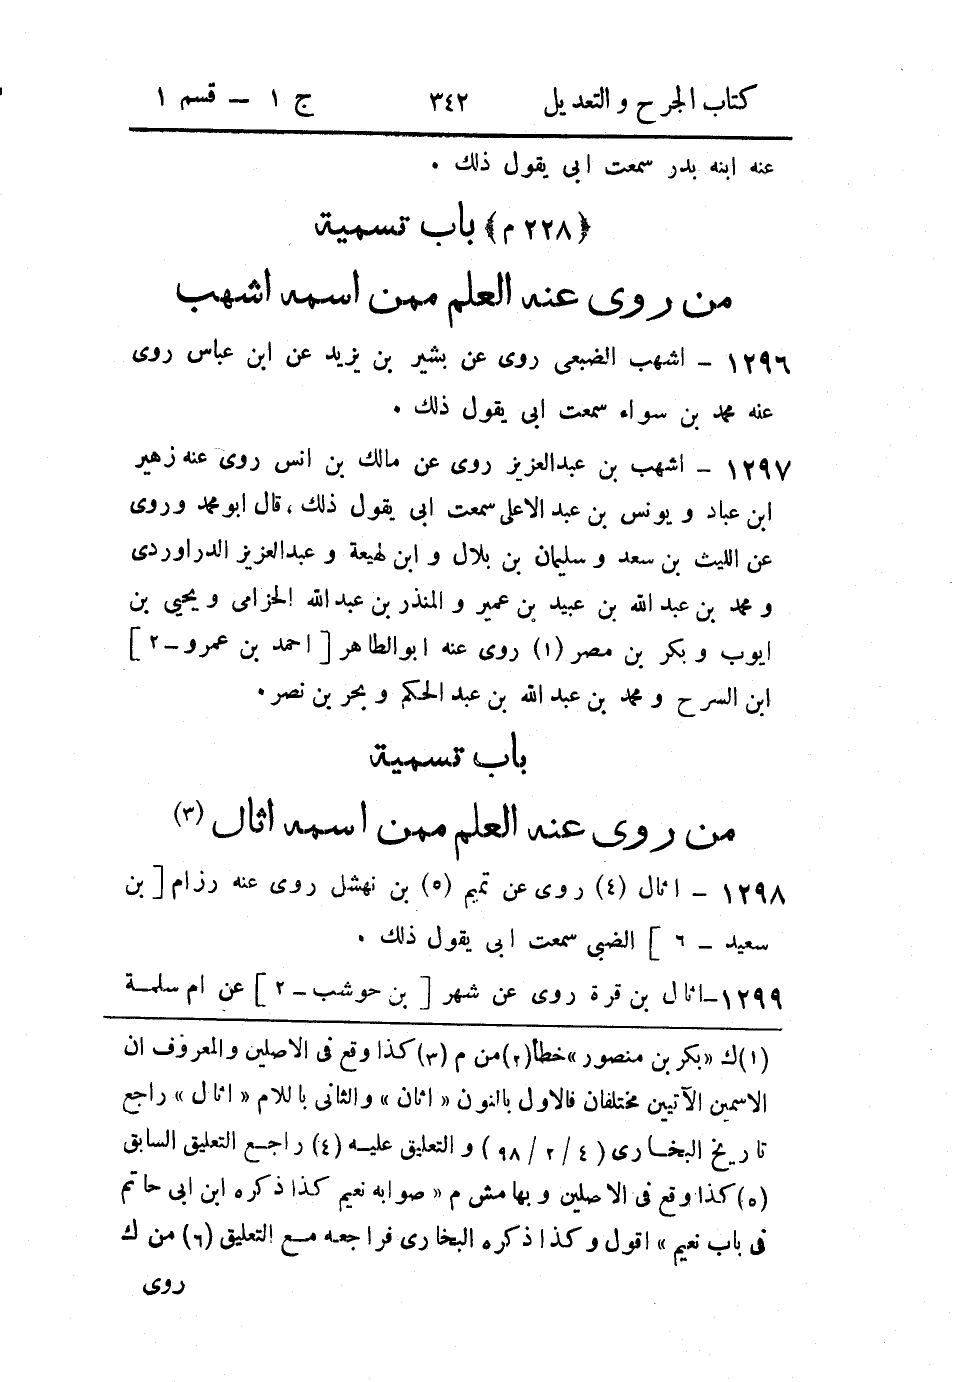 كتاب الجرح والتعديل ٣٤٢ ج ١ – قسم ١
عنه ابنه بدر سمعت ابى يقول ذلك .
﴿٢٢٨ م﴾ باب تسمية
من روى عنه العلم ممن اسمه اشهب
١٢٩٦ – اشهب الضبعى روى عن بشير بن يزيد عن ابن عباس روى
عنه محمد بن سواء سمعت ابى يقول ذلك .
١٢٩٧ – اشهب بن عبدالعزيز روى عن مالك بن انس روى عنه زهير
ابن عباد و يونس بن عبد الاعلى سمعت ابى يقول ذلك ، قال ابو محمد وروى
عن الليث بن سعد و سليمان بن بلال و ابن لهيعة و عبدالعزيز الدراوردى
و محمد بن عبد الله بن عبيد بن عمير و المنذر بن عبد الله الحزامى و يحيى بن
ايوب و بكر بن مصر (١) روى عنه ابوالطاهر [ احمد بن عمرو – ٢ ]
ابن السرح و محمد بن عبد الله بن عبد الحكم و بحر بن نصر .
باب تسمية
من روى عنه العلم ممن اسمه اثال (٣)
١٢٩٨ – اثال (٤) روى عن تميم (٥) بن نهشل روى عنه رزام [ بن
سعيد – ٦ ] الضبى سمعت ابى يقول ذلك .
١٢٩٩ – اثال بن قرة روى عن شهر [ بن حوشب – ٢ ] عن ام سلمة
(١) ك « بكر بن منصور » خطأ (٢) من م (٣) كذا وقع فى الاصلين والمعروف ان
الاسمين الآتيين مختلفان فالاول بالنون « اثان » والثانى باللام « اثال » راجع
تاريخ البخارى ( ٤ / ٢ / ٩٨ ) و التعليق عليه (٤) راجع التعليق السابق
(٥) كذا وقع فى الاصلين و بهامش م « صوابه نعيم كذا ذكره ابن ابى حاتم
فى باب نعيم » اقول وكذا ذكره البخارى فراجعه مع التعليق (٦) من ك
روى